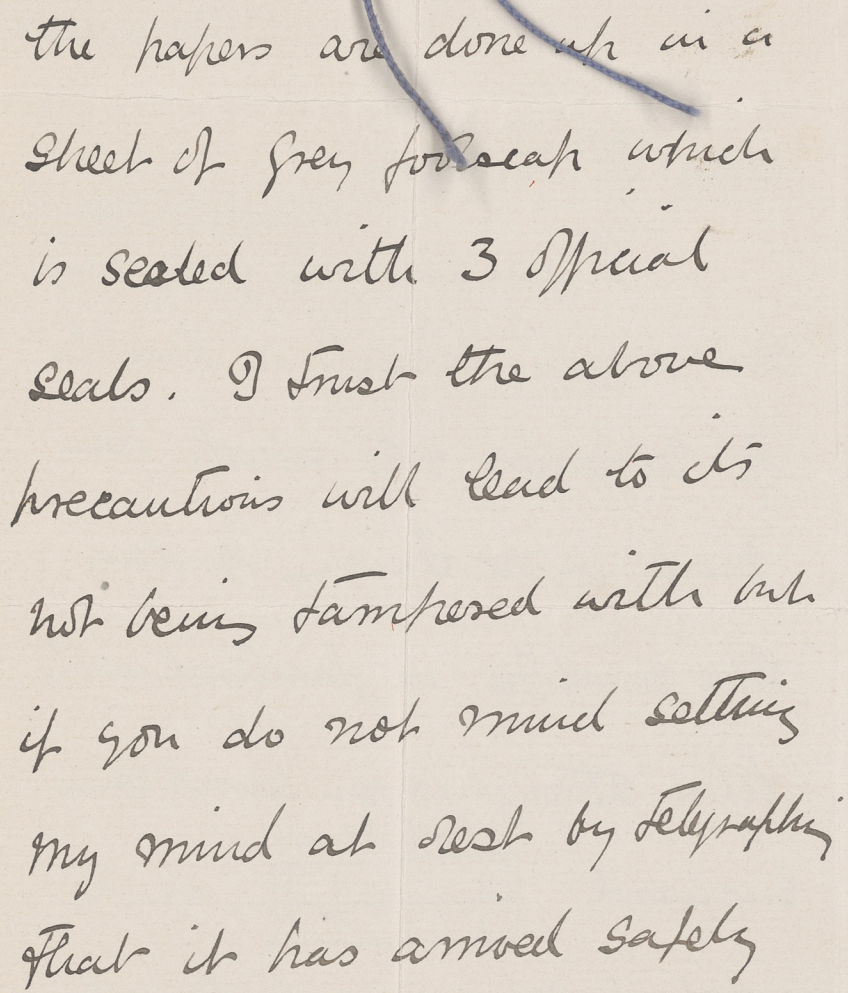 the papers are done up in a
sheet of grey foolscap which
is sealed with 3 official
seals. I trust the above
precautions will lead to its
not being tampered with but
if you do not mind setting
my mind at rest by telegraphing
that it has arrived safely